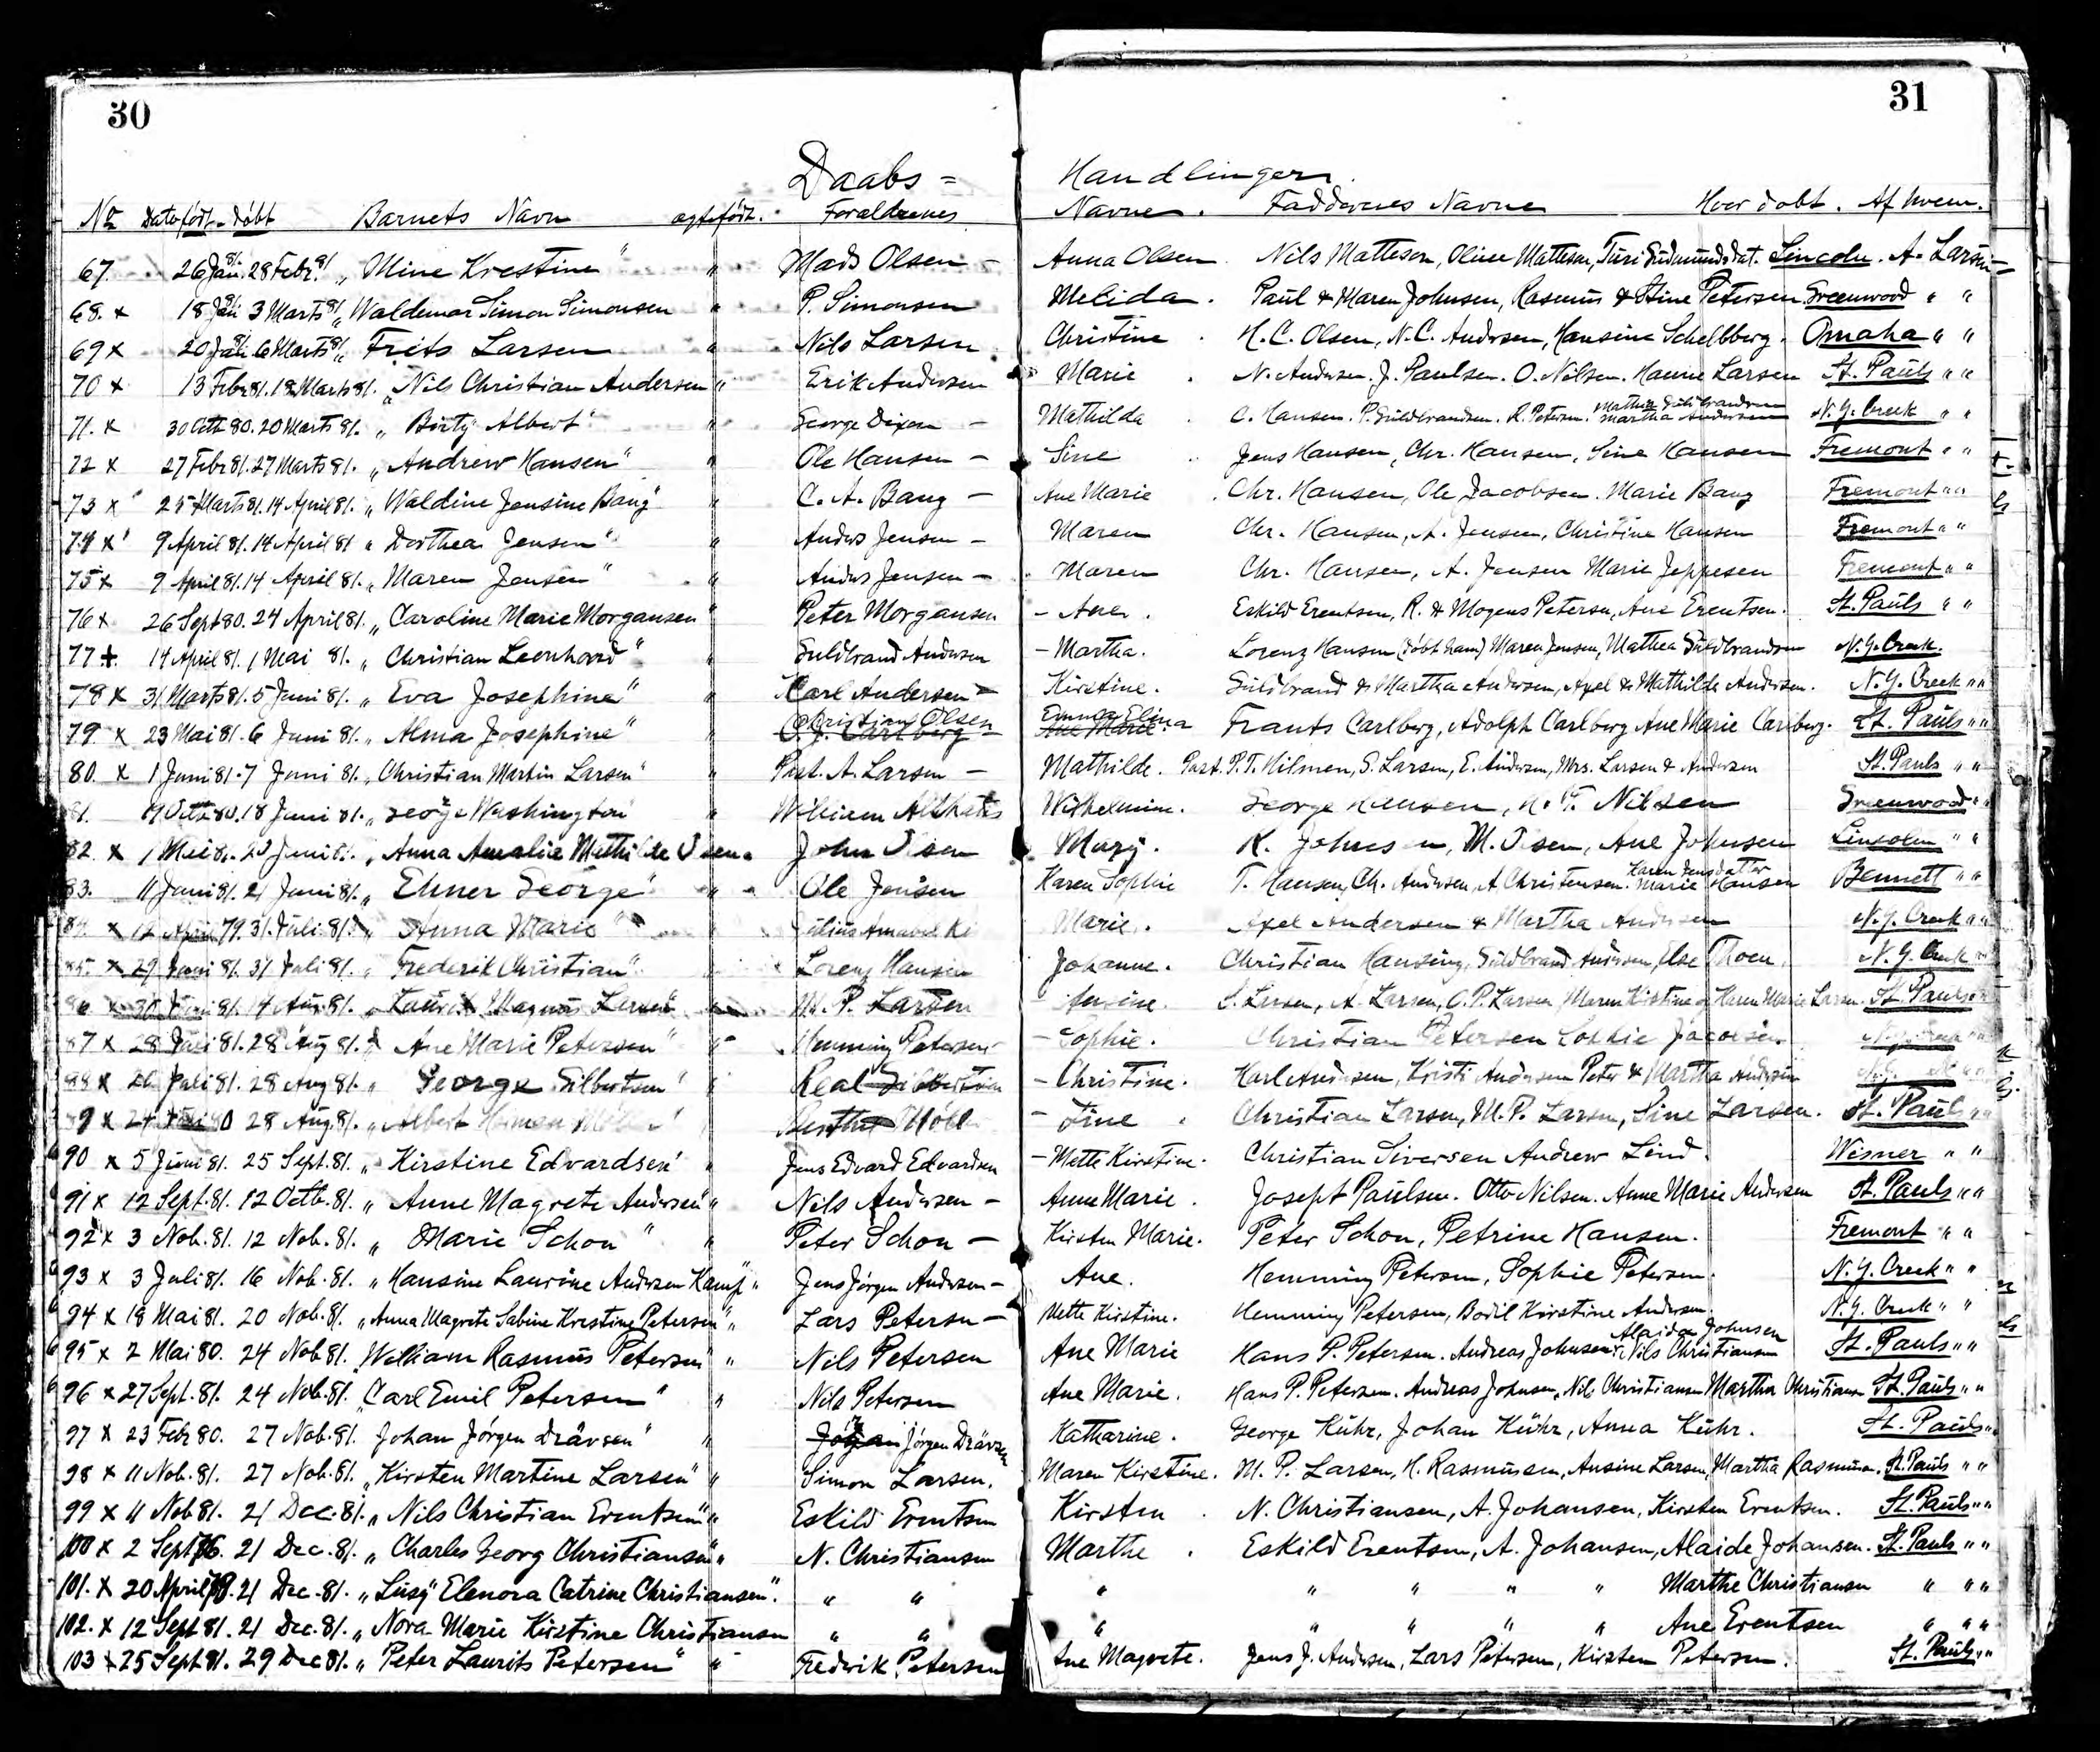 30
31
Daabs = Handlinger.
No Dato født - døbt Barnets Navn ægtefødt. Forældrenes Navne. Faddernes Navne Hvor døbt. Af hvem.
67. 26 Jan. 81. 28 Febr. 81 „ Mine Krestine " " Mads Olsen – Anna Olsen. Nils Matteson, Oline Matteson, Turi Gudmundsdat. Lincoln. A. Larsen
68. x 18 Jan. 81 3 Marts 81 „ Waldemar Simon Simonsen " P. Simonsen Melida. Paul & Maren Johnsen, Rasmus & Stine Petersen Greenwood " "
69 x 20 Jan. 81 6 Marts 81 „ Frits Larsen " Nils Larsen Christine. H. C. Olsen, N. C. Andersen, Hansine Schellberg. Omaha " "
70 x 13 Febr 81. 18 Marts 81. „ Nils Christian Andersen " Erik Andersen Marie. N. Andersen. J. Paulsen. O. Nilsen. Hanne Larsen St. Pauls " "
71. x 30 Octb 80. 20 Marts 81. „ Birty Albert " George Dixon – Mathilda C. Hansen. P. Guldbrandsen. R. Petersen. Mathea Guldbrandsen Martha Andersen N. Y. Creek " "
72 x 27 Febr 81. 27 Marts 81. „ Andrew Hansen " " Ole Hansen – Sine Jens Hansen, Chr. Hansen, Sine Hansen Fremont " "
73 x 25 Marts 81. 14 April 81. „ Waldine Jensine Bang " " C. A. Bang – Ane Marie. Chr. Hansen, Ole Jacobsen. Marie Bang Fremont " "
74 x 9 April 81. 14 April 81 „ Dorthea Jensen " " Anders Jensen – Maren Chr. Hansen, A. Jensen, Christine Hansen Fremont " "
75 x 9 April 81. 14 April 81. „ Maren Jensen " " Anders Jensen – Maren Chr. Hansen, A. Jensen Marie Jeppesen Fremont " "
76 x 26 Sept 80. 24 April 81. „ Caroline Marie Morgansen " Peter Morgansen – Ane. Eskild Erentsen, R. & Mogens Petersen, Ane Erentsen. St. Pauls " "
77 +. 14 April 81. 1 Mai 81. „ Christian Leonhard " " Guldbrand Andersen – Martha. Lorenz Hansen (døbt ham) Maren Jensen, Mathea Guldbrandsen N. Y. Creek.
78 x 31 Marts 81. 5 Juni 81. „ Eva Josephine " " Carl Andersen – Kirstine. Guldbrand & Martha Andersen, Axel & Mathilde Andersen. N. Y. Creek " "
79 x 23 Mai 81. 6 Juni 81. „ Alma Josephine " Christian Olsen O. J. Carlberg – Emma Elina Ane Marie. Frants Carlberg, Adolph Carlberg Ane Marie Carlberg. St. Pauls " "
80. x 1 Juni 81. 7 Juni 81. „ Christian Martin Larsen " " Past. A. Larsen – Mathilde. Past. P. T. Hilmen, S. Larsen, E. Andersen, Mrs. Larsen & Andersen St. Pauls " "
81. Octb 80. 18 Juni 81. „ George Washington " William Wilhelmine. George Hansen, N. F. Nilsen Greenwood " "
82. x 1 Mai 81. 20 Juni 81. „ Anna Amalie Mathilde Olsen " John Olsen Mary. K. Johnsen, M. Olsen, Ane Johnsen Lincoln " "
83. 11 Juni 81. 21 Juni 81. „ Elmer George " " Ole Jensen Karen Sophie T. Hansen, Ch. Andersen, A. Christensen. Karen Jensdatter Marie Hansen Bennett " "
84. x 12 April 79. 31. Juli 81. „ Anna Marie " Julius Marie. Axel Andersen & Martha Andersen N. Y. Creek " "
85. x 29 Juni 81. 31 Juli 81. „ Frederik Christian " Lorenz Hansen Johanne. Christian Hansing, Guldbrand Andersen, Else Thoen. N. Y. Creek " "
86 x 30 Juni 81. 14 Aug. 81. „ Laurits Magnus Larsen " M. P. Larsen – Ansine. S. Larsen, A. Larsen, C. P. Larsen, Maren Kirstine og Karen Marie Larsen. St. Pauls " "
87 x 28 Juli 81. 28 Aug 81. „ Ane Marie Petersen " " Hemming Petersen – Sophie. Christian Petersen Sophie Jacobsen.
88 x 26 Juli 81. 28 Aug 81. „ George Gilbertsen " Real Gilbertsen – Christine. Karl Andersen, Kristi Andersen Peter & Martha Andersen
89 x 24 80 28 Aug. 81. „ Albert Bertha – Sine. Christian Larsen, M. P. Larsen, Sine Larsen. St. Pauls " "
90 x 5 Juni 81. 25 Sept. 81. „ Kirstine Edvardsen " " Jens Edvard Edvardsen – Mette Kirstine. Christian Siversen Andrew Lind. Wisner " "
91 x 12 Sept. 81. 12 Octb. 81. „ Anne Magrete Andersen " " Nils Andersen – Anne Marie. Joseph Paulsen. Otto Nilsen. Anne Marie Andersen St. Pauls " "
92 x 3 Nob. 81. 12 Nob. 81. „ Marie Schon " " Peter Schon – Kirsten Marie. Peter Schon, Petrine Hansen. Fremont " "
93 x 3 Juli 81. 16 Nob. 81. „ Hansine Laurine Andersen Kamp " " Jens Jørgen Andersen – Ane. Hemming Petersen, Sophie Petersen. N. Y. Creek " "
94 x 18 Mai 81. 20 Nob. 81. „ Anna Magrete Sabine Krestine Petersen " " Lars Petersen – Mette Kirstine. Hemming Petersen, Bodil Kirstine Andersen. N. Y. Creek " "
95 x 2 Mai 80. 24 Nob 81. William Rasmus Petersen " " Nils Petersen Ane Marie Hans P. Petersen. Andreas Johnsen Alaida Johnsen Nils Christiansen St. Pauls " "
96 x 27 Sept. 81. 24 Nob. 81. „ Carl Emil Petersen " " Nils Petersen Ane Marie. Hans P. Petersen. Andreas Johnsen, Nils Christiansen Martha Christiansen St. Pauls " "
97 x 23 Febr 80. 27 Nob. 81. Johan Jørgen Dråvsen " " Jørgen Dråvsen Katharine. George Kühr, Johan Kühr, Anna Kühr. St. Pauls " "
98 x 11 Nob. 81. 27 Nob. 81. „ Kirsten Martine Larsen " " Simon Larsen. Maren Kirstine. M. P. Larsen, H. Rasmussen, Ansine Larsen, Martha Rasmussen. St. Pauls " "
99 x 11 Nob 81. 21 Dec. 81. „ Nils Christian Erentsen " " Eskild Erentsen Kirsten. N. Christiansen, A. Johansen, Kirsten Erentsen. St. Pauls " "
100 x 2 Sept 76. 21 Dec. 81. „ Charles Georg Christiansen " " N. Christiansen Marthe. Eskild Erentsen, A. Johansen, Alaide Johansen. St. Pauls " "
101. x 20 April 78. 21 Dec. 81. „ Lusy Elenora Catrine Christiansen ". " " " " " " " Marthe Christiansen " " "
102. x 12 Sept 81. 21 Dec. 81. „ Nora Marie Kirstine Christiansen " " " " " " " Ane Erentsen " " "
103 x 25 Sept 81. 29 Dec 81. „ Peter Laurits Petersen " " Fredrik Petersen Ane Magrete. Jens J. Andersen, Lars Petersen, Kirsten Petersen. St. Pauls " "